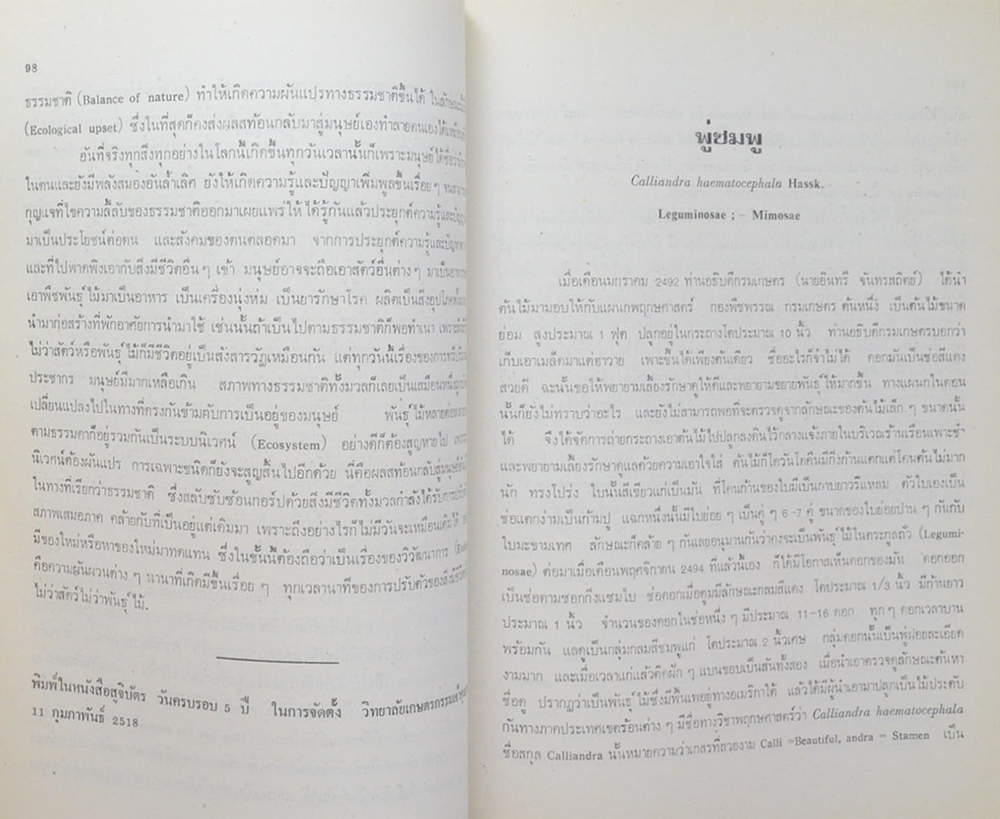 98
ธรรมชาติ (Balance of nature) ทำให้เกิดความผันแปรทางธรรมชาติขึ้นได้ ในลักษณะ
(Ecological upset) ซึ่งในที่สุดก็คงส่งผลสท้อนกลับมาสู่มนุษย์เองทำลายตนเองได้เหมือน
อันที่จริงทุกสิ่งทุกอย่างในโลกนี้เกิดขึ้นทุกวันเวลานั้นก็เพราะมนุษย์ได้
ในตนและยังมีพลังสมองอันล้ำเลิศ ยังให้เกิดความรู้และปัญญาเพิ่มพูลขึ้นเรื่อย ๆ
กุญแจที่ไขความลี้ลับของธรรมชาติออกมาเผยแพร่ให้ ได้รู้กันแล้วประยุกต์ความรู้และ
มาเป็นประโยชน์ต่อตน และสังคมของตนตลอดมา จากการประยุกต์ความรู้และ
และที่ไปพาดพิงเอากับสิ่งมีชีวิตอื่น ๆ เข้า มนุษย์อาจจะถือเอาสัตว์อื่นต่าง ๆ มาเป็น
เอาพืชพันธุ์ ไม้มาเป็นอาหาร เป็นเครื่องนุ่งห่ม เป็นยารักษาโรค ผลิตเป็นสิ่งอุปโภค
นำมาก่อสร้างที่พักอาศัยการนำมาใช้ เช่นนั้นถ้าเป็นไปตามธรรมชาติก็พอทำเนา เพราะ
ไม่ว่าสัตว์หรือพันธุ์ ไม้ก็มีชีวิตอยู่เป็นสังสารวัฏเหมือนกัน แต่ทุกวันนี้เรื่องของการ
ประชากร มนุษย์มีมากเหลือเกิน สภาพทางธรรมชาติทั้งมวลก็เลยเป็นเสมือนหนึ่ง
เปลี่ยนแปลงไปในทางที่ตรงกันข้ามกับการเป็นอยู่ของมนุษย์ พันธุ์ ไม้หลาย
ตามธรรมดาก็อยู่รวมกันเป็นระบบนิเวศน์ (Ecosystem) อย่างดีก็ต้องสูญหายไป
นิเวศน์ต้องผันแปร การเฉพาะชนิดก็ยังจะสูญสิ้นไปอีกด้วย นี่คือผลสท้อนกลับสู่มนุษย์
ในทางที่เรียกว่าธรรมชาติ ซึ่งสลับซับซ้อนกอร์ปด้วยสิ่งมีชีวิตทั้งมวลกำลังได้รับ
สภาพเสมอภาค คล้ายกับที่เป็นอยู่แต่เดิมมา เพราะถึงอย่างไรก็ไม่มีวันจะเหมือนเดิมได้
มีของใหม่หรือหาของใหม่มาทดแทน ซึ่งในขั้นนี้ต้องถือว่าเป็นเรื่องของวิวัฒนาการ
คือความผันผวนต่าง ๆ นานาที่เกิดมีขึ้นเรื่อย ๆ ทุกเวลานาทีของการปรับตัวของสิ่งมีชีวิต
ไม่ว่าสัตว์ ไม่ว่าพันธุ์ ไม้.
พิมพ์ในหนังสือสูจิบัตร วันครบรอบ 5 ปี ในการจัดตั้ง วิทยาลัยเกษตรกรรม
11 กุมภาพันธ์ 2518
พู่ชมพู
Calliandra haematocephala Hassk.
Leguminosae ; – Mimosae
เมื่อเดือนมกราคม 2492 ท่านอธิบดีกรมเกษตร (นายอินทรี จันทรสถิตย์) ได้นำ
ต้นไม้มามอบให้กับแผนกพฤกษศาสตร์ กองพืชพรรณ กรมเกษตร ต้นหนึ่ง เป็นต้นไม้ขนาด
ย่อม สูงประมาณ 1 ฟุต ปลูกอยู่ในกระถางโตประมาณ 10 นิ้ว ท่านอธิบดีกรมเกษตรบอกว่า
เก็บเอาเมล็ดมาแต่ฮาวาย เพาะขึ้นได้เพียงต้นเดียว ชื่ออะไรก็จำไม่ได้ ดอกมันเป็นช่อสีแดง
สวยดี ฉะนั้นขอให้พยายามเลี้ยงรักษาดูให้ดีและพยายามขยายพันธุ์ ให้มากขึ้น ทางแผนกในตอน
นั้นก็ยังไม่ทราบว่าอะไร และยังไม่สามารถพอที่จะตรวจดูจากลักษณะของต้นไม้เล็ก ๆ ขนาดนั้น
ได้ จึงได้จัดการถ่ายกระถางเอาต้นไม้ไปปลูกลงดินไว้กลางแจ้งภายในบริเวณร้านเรือนเพาะชำ
และพยายามเลี้ยงรักษาดูแลด้วยความเอาใจใส่ ต้นไม้ก็โตวันโตคืนมีกิ่งก้านแตกแต่โคนต้นไม่มาก
นัก ทรงโปร่ง ใบนั้นสีเขียวแก่เป็นมัน ที่โคนก้านของใบมีเป็นกาบยาวรีแหลม ตัวใบเองเป็น
ช่อแตกง่ามเป็นก้ามปู แฉกหนึ่งนั้นมีใบย่อย ๆ เป็นคู่ ๆ 6 -7 คู่ ขนาดของใบย่อยปาน ๆ กันกับ
ใบมะขามเทศ ลักษณะก็คล้าย ๆ กันเลยอนุมานกันว่าคงจะเป็นพันธุ์ ไม้ในตระกูลถั่ว (Legumi-
nosae) ต่อมาเมื่อเดือนพฤศจิกายน 2494 ที่แล้วนี้เอง ก็ได้มีโอกาสเห็นดอกของมัน ดอกออก
เป็นช่อตามซอกกิ่งแซมใบ ช่อดอกเมื่อตูมมีลักษณะกลมสีแดง โตประมาณ 1/3 นิ้ว มีก้านยาว
ประมาณ 1 นิ้ว จำนวนของดอกในช่อหนึ่ง ๆ มีประมาณ 11-16 ดอก ทุก ๆ ดอกเวลาบาน
พร้อมกัน แลดูเป็นกลุ่มกลมสีชมพูแก่ โตประมาณ 2 นิ้วเศษ กลุ่มดอกนั้นเป็นพู่ฝอยละเอียด
งามมาก และเมื่อเวลาแก่แล้วติดฝัก ๆ แบนขอบเป็นสันทั้งสอง เมื่อนำเอาตรวจดูลักษณะค้นหา
ชื่อดู ปรากฏว่าเป็นพันธุ์ ไม้ซึ่งมีพื้นเพอยู่ทางอเมริกาใต้ แล้วได้มีผู้นำเอามาปลูกเป็นไม้ประดับ
กันทางภาคประเทศเขตร้อนต่าง ๆ มีชื่อทางวิชาพฤกษศาสตร์ว่า Calliandra haematocephala
ชื่อสกุล Calliandra นั้นหมายความว่าเกสรที่สวยงาม Calli =Beautiful, andra = Stamen เป็น